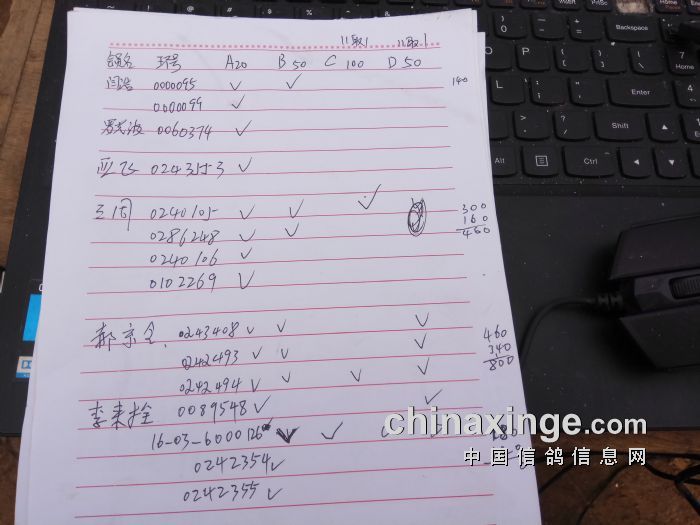 11取1 11取1
环号 A20 B50 C100 D50
0000095 ✓ ✓ 140
0000099 ✓
0060374 ✓
亚飞 0243553 ✓
0240105 ✓ ✓ ✓ 300
0286248 ✓ ✓ 160
460
0240106 ✓
0102269 ✓
郝京全 0243408 ✓ ✓ ✓ 460
0242493 ✓ ✓ ✓ 340
800
0242494 ✓ ✓ ✓ ✓
李来拴 0089548 ✓ ✓
16-03-6000126 ✓ ✓
0242354 ✓
0242355 ✓
chinaxinge.com
中国信鸽信息网
Backspace
Home
Enter
Shift
Ctrl